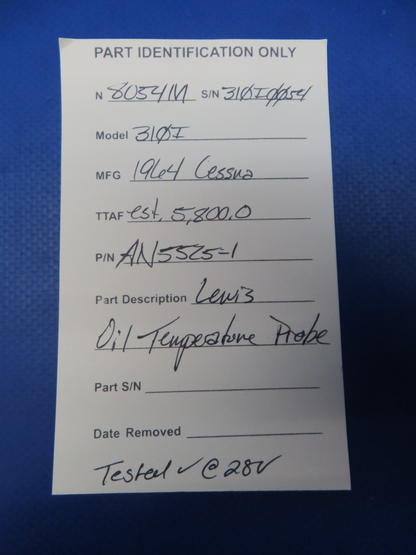 PART IDENTIFICATION ONLY
N 8054M S/N 310I0054
Model 310I
MFG 1964 Cessna
TTAF est. 5,800.0
P/N AN5525-1
Part Description Lewis
Oil Temperature Probe
Part S/N
Date Removed
Tested ✓ @ 28V